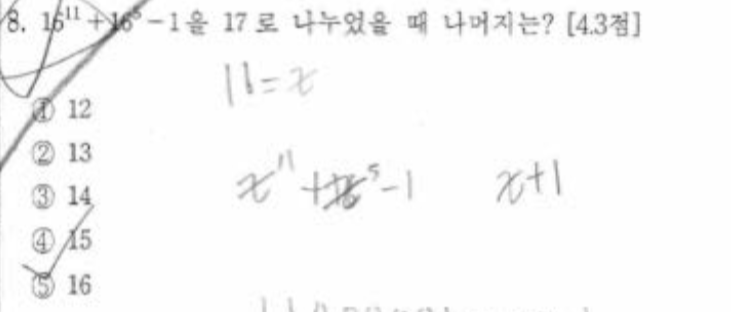 8. 16¹¹+16⁵-1을 17로 나누었을 때 나머지는? [4.3점]
16=x
① 12
② 13
x¹¹+x⁵-1 x+1
③ 14
④ 15
⑤ 16